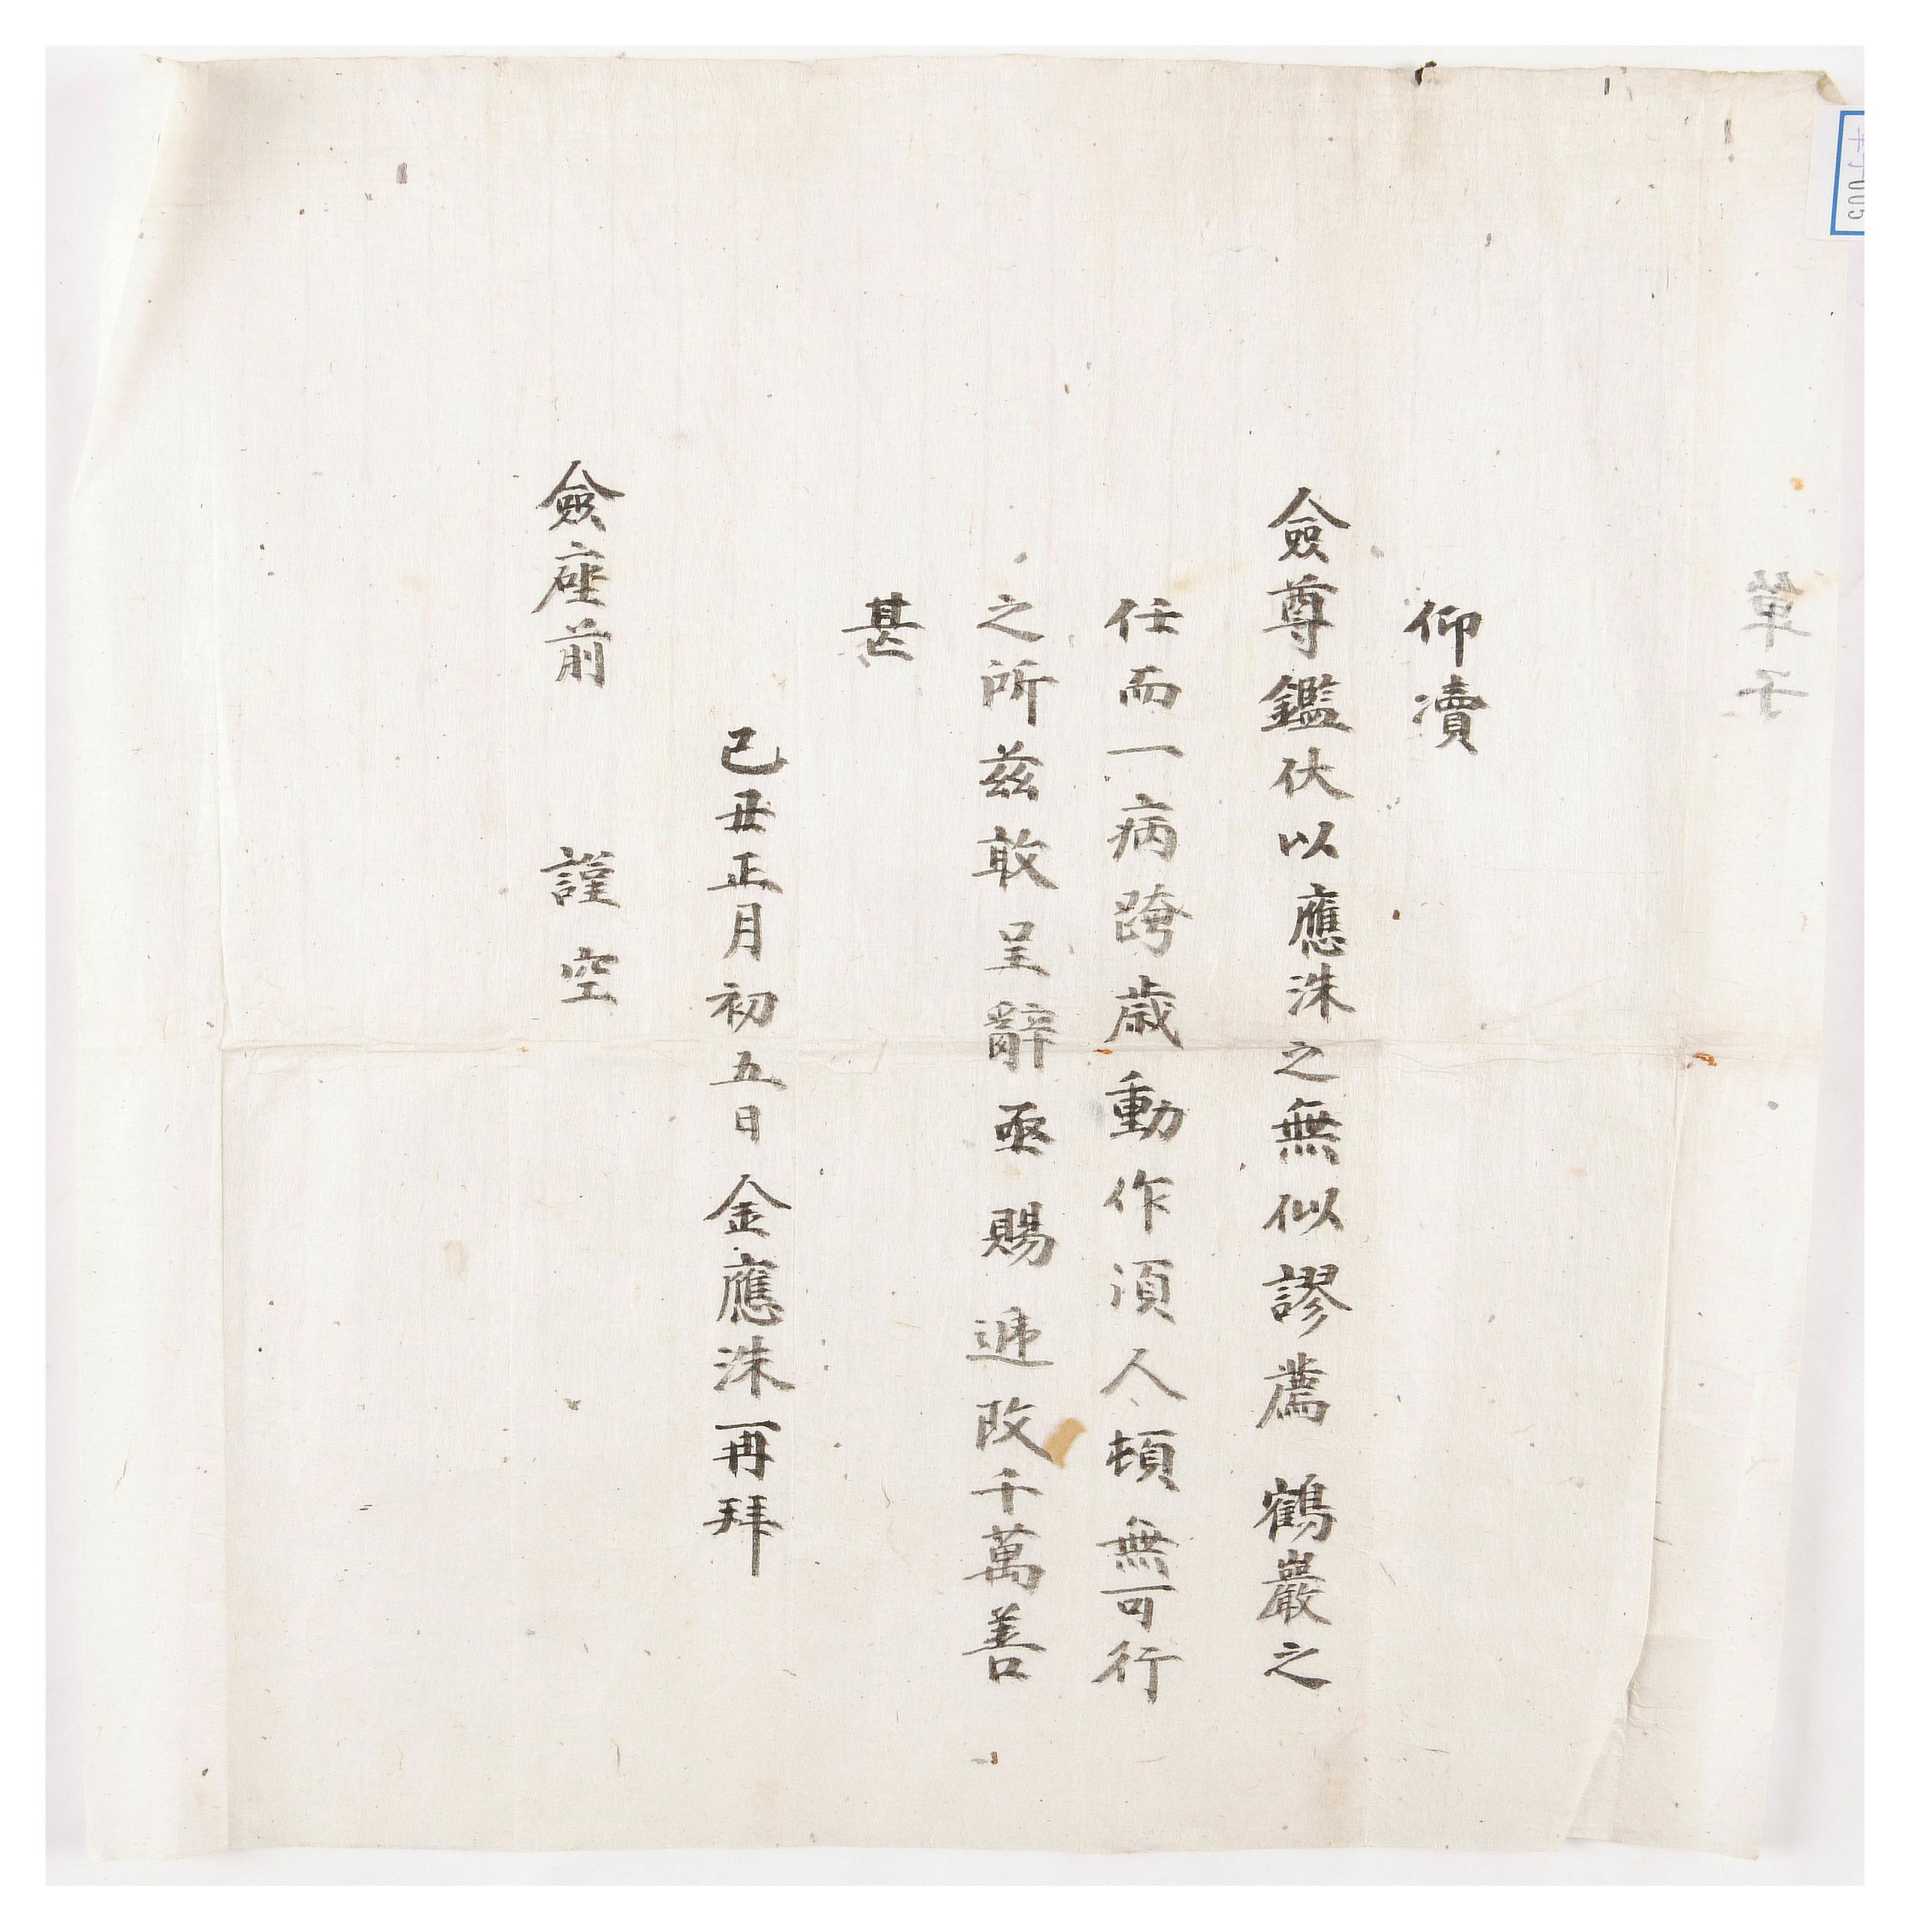 單子
仰瀆
僉尊鑑伏以應洙之無似謬薦 鶴巖之
任而一病跨歲動作須人頓無可行
之所玆敢呈辭亟賜遞改千萬善
甚
己丑正月初五日金應洙再拜
僉座前 謹空